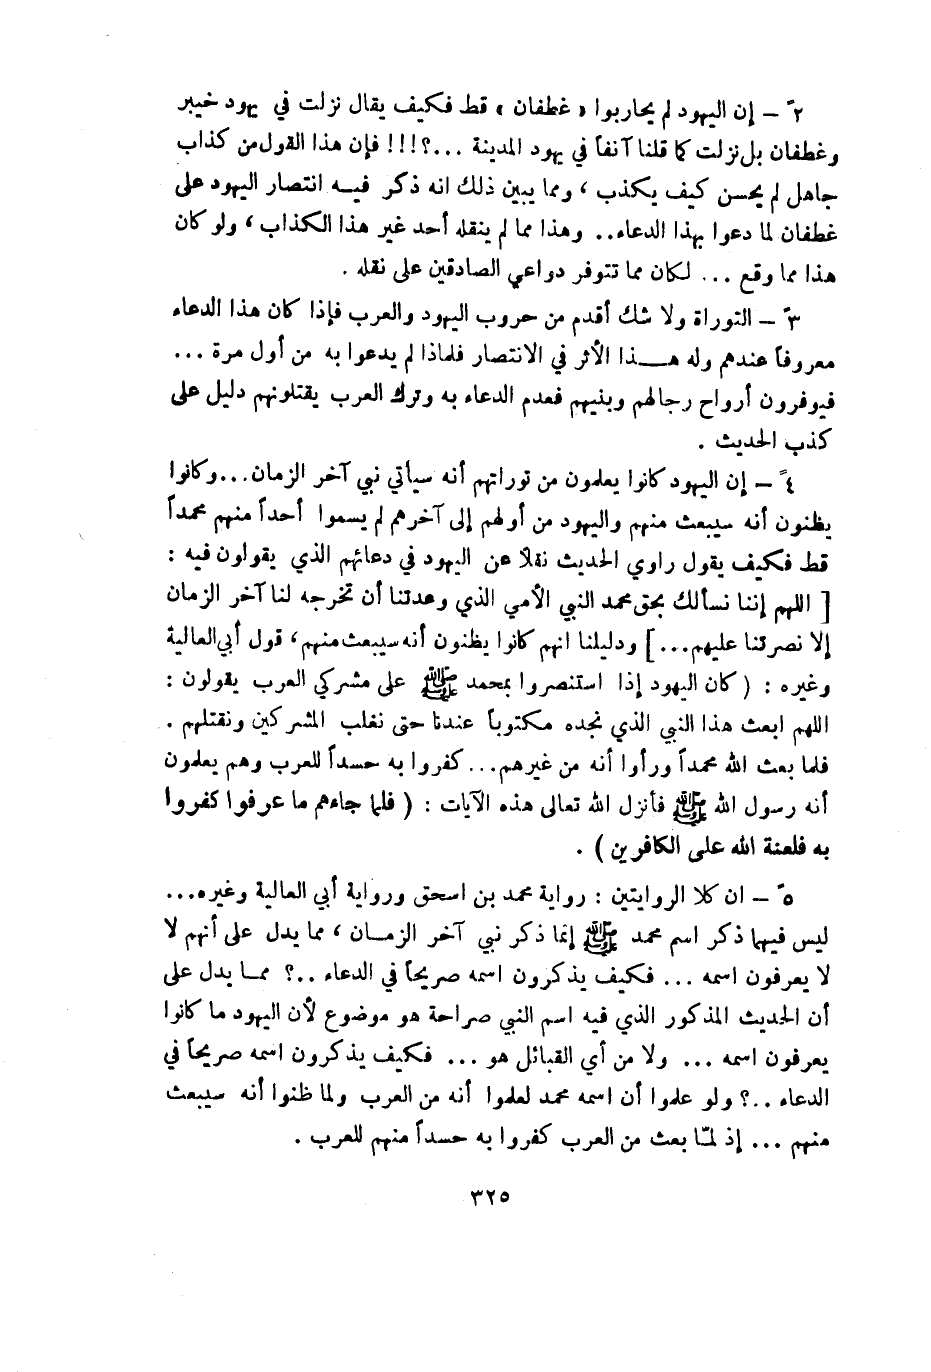 ٢ً – إن اليهود لم يحاربوا «غطفان» قط فكيف يقال نزلت في يهود خيبر
وغطفان بل نزلت كما قلنا آنفاً في يهود المدينة ...؟!!! فإن هذا القول من كذاب
جاهل لم يحسن كيف يكذب ، ومما يبين ذلك انه ذكر فيــه انتصار اليهود على
غطفان لما دعوا بهذا الدعاء.. وهذا مما لم ينقله أحد غير هذا الكذاب ، ولو كان
هذا مما وقع ... لكان مما تتوفر دواعي الصادقين على نقله .
٣ً – التوراة ولا شك أقدم من حروب اليهود والعرب فإذا كان هذا الدعاء
معروفاً عندهم وله هـــذا الأثر في الانتصار فلماذا لم يدعوا به من أول مرة ...
فيوفرون أرواح رجالهم وبنيهم فعدم الدعاء به وترك العرب يقتلونهم دليل على
كذب الحديث .
٤ً – إن اليهود كانوا يعلمون من توراتهم أنه سيأتي نبي آخر الزمان...وكانوا
يظنون أنه سيبعث منهم واليهود من أولهم إلى آخرهم لم يسموا أحداً منهم محمداً
قط فكيف يقول راوي الحديث نقلاً عن اليهود في دعائهم الذي يقولون فيه :
[ اللهم إننا نسألك بحق محمد النبي الأمي الذي وعدتنا أن تخرجه لنا آخر الزمان
إلا نصرتنا عليهم...] ودليلنا انهم كانوا يظنون أنه سيبعث منهم، قول أبي العالية
وغيره : ( كان اليهود إذا استنصروا بمحمد ﷺ على مشركي العرب يقولون :
اللهم ابعث هذا النبي الذي نجده مكتوباً عندنا حتى نغلب المشركين ونقتلهم .
فلما بعث الله محمداً ورأوا أنه من غيرهم... كفروا به حسداً للعرب وهم يعلمون
أنه رسول الله ﷺ فأنزل الله تعالى هذه الآيات : ( فلما جاءهم ما عرفوا كفروا
به فلعنة الله على الكافرين ) .
٥ً – ان كلا الروايتين : رواية محمد بن اسحق ورواية أبي العالية وغيره...
ليس فيهما ذكر اسم محمد ﷺ إنما ذكر نبي آخر الزمــان ، مما يدل على أنهم لا
لا يعرفون اسمه ... فكيف يذكرون اسمه صريحاً في الدعاء ..؟ ممــا يدل على
أن الحديث المذكور الذي فيه اسم النبي صراحة هو موضوع لأن اليهود ما كانوا
يعرفون اسمه ... ولا من أي القبائل هو ... فكيف يذكرون اسمه صريحاً في
الدعاء ..؟ ولو علموا أن اسمه محمد لعلموا أنه من العرب ولما ظنوا أنه سيبعث
منهم ... إذ لمّا بعث من العرب كفروا به حسداً منهم للعرب .
٣٢٥